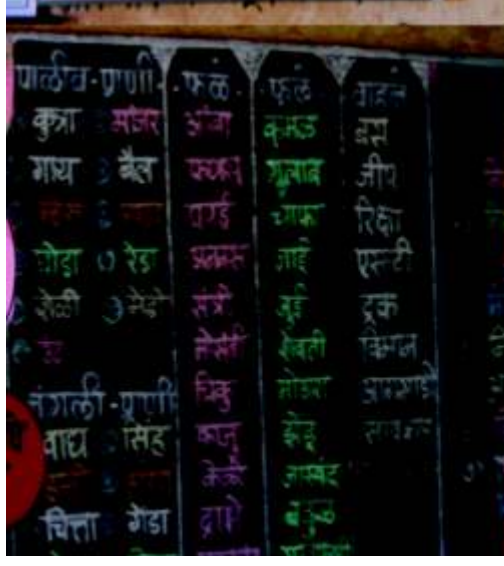 पाळीव-प्राणी-
कुत्रा मांजर
गाय बैल
घोडा रेडा
शेळी मेंढी
उंट
जंगली-प्राणी
वाघ सिंह
चित्ता गेंडा
फळे
आंबा
फणस
पपई
अननस
संत्री
मोसंबी
चिकु
काजू
केळे
द्राक्षे
फुले
कमळ
गुलाब
चाफा
जाई
जुई
शेवती
मोगरा
झेंडू
जास्वंद
बकुळ
वाहने
बस
जीप
रिक्षा
एसटी
ट्रक
विमान
आगगाडी